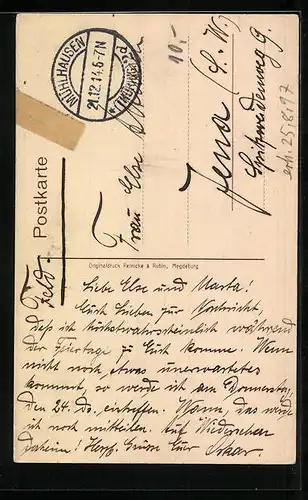 MÜHLHAUSEN
21.12.14.6-7N
(THÜRINGEN)
10,-
Feld-Postkarte
Frau Else
Jena (S.-W.)
Spitzweidenweg 9.
erh. 25.8.97
Originaldruck Reinicke & Rubin, Magdeburg
Liebe Else und Marta!
Euch Lieben zur Nachricht,
daß ich höchstwahrscheinlich während
der Feiertage zu Euch komme. Wenn
nicht noch etwas unerwartetes
kommt, so werde ich am Donnerstag,
den 24. Ds. eintreffen. Wann, das werde
ich noch mitteilen. Auf Wiedersehen
daheim! Herzl. Grüsse Euer Oskar.